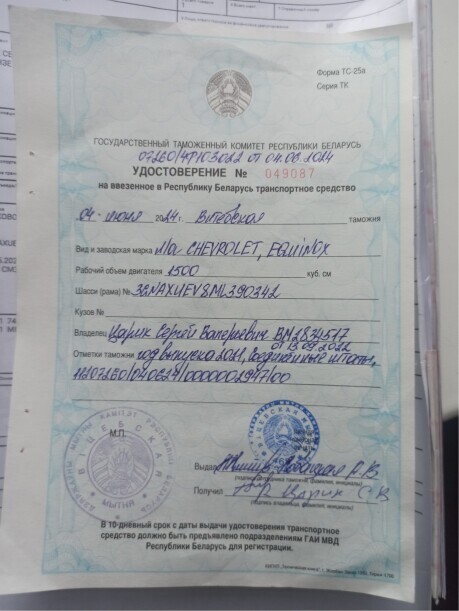 Форма ТС-25а
Серия ТК
ГОСУДАРСТВЕННЫЙ ТАМОЖЕННЫЙ КОМИТЕТ РЕСПУБЛИКИ БЕЛАРУСЬ
от 04.06.2024
УДОСТОВЕРЕНИЕ № 049087
на ввезенное в Республику Беларусь транспортное средство
04 июня 2024г. Витебская таможня
Вид и заводская марка л/а CHEVROLET, EQUINOX
Рабочий объем двигателя 1500 куб. см
Шасси (рама) № 3GNAXUEV8ML390342
Кузов №
Владелец Царик Сергей Валерьевич BM2834517
от 13.09.2022
Отметки таможни год выпуска 2021, Соединенные штаты,
11207260/040624/0000002947/00
М.П.
Выдал
(подпись должностного лица таможни, фамилия, инициалы)
Получил Царик С.В
(подпись владельца, фамилия, инициалы)
В 10-дневный срок с даты выдачи удостоверения транспортное
средство должно быть предъявлено подразделениям ГАИ МВД
Республики Беларусь для регистрации.